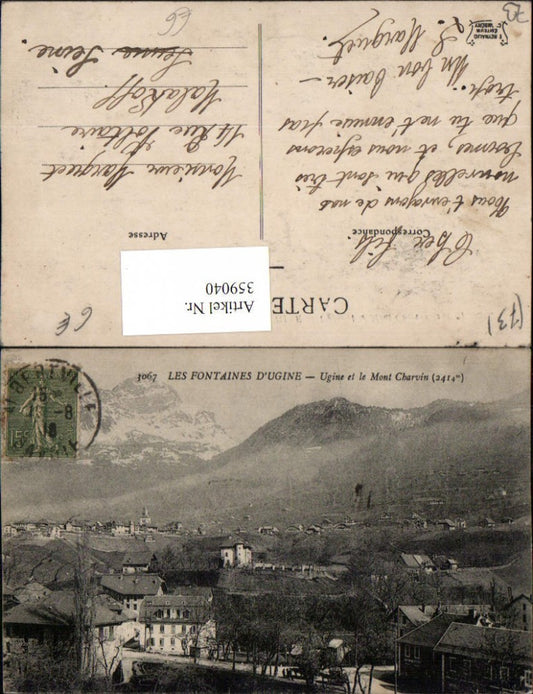 73
E. REYNAUD
EDITEUR
CHAMBERY
CARTE
Correspondance
Adresse
Cher fils.
Nous t'envoyons de nos
nouvelles qui sont très
bonnes, et nous espérons
que tu ne t'ennuie pas
trop.
Un bon baiser
Marquet
Monsieur Marquet
14 Rue Voltaire
Malakoff
Seine
Artikel Nr.
359040
6€
(73)
3067 LES FONTAINES D'UGINE — Ugine et le Mont Charvin (2414m)
BERTVILLE
15c